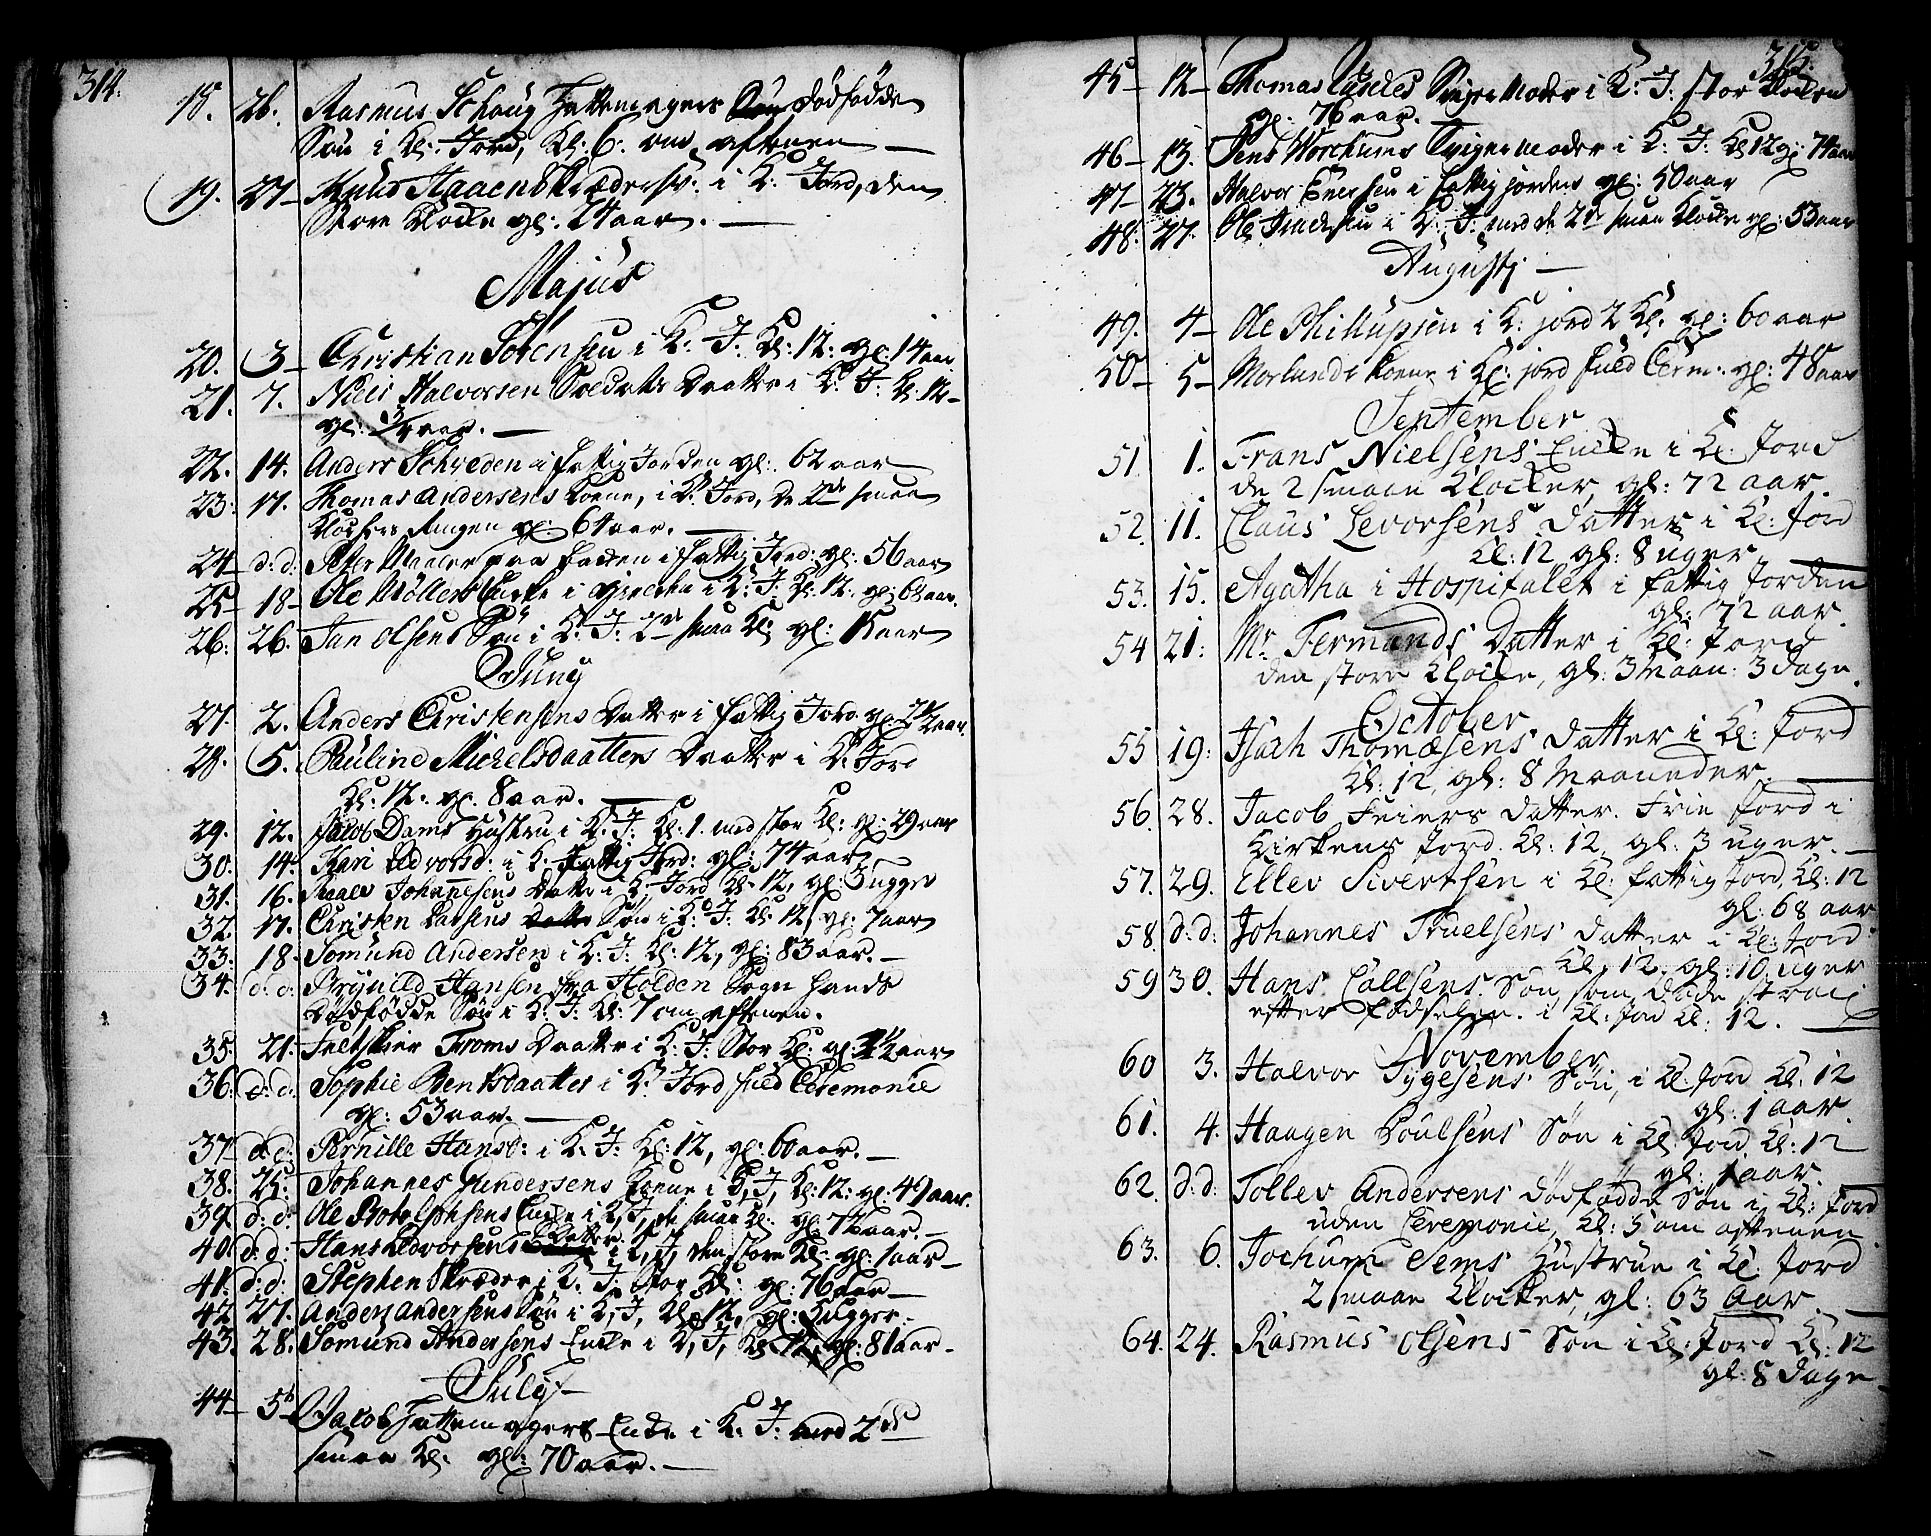 314.
18. 26. Rasmus Schoug Hattemagers Søn dødfødde
Søn i K: Jord, Kl: 6. om aftenen
19. 27 Knud Haaen Skrædersv: i K: Jord, den
Store Klocke gl: 24 aar.
Majus
20. 3 Christian Sörensen i K: J: Kl: 12: gl: 14 aar
21. 7. Niels Halvorsen Soldats Daatter i K: J: Kl: 12
gl: 3/4 aar.
22. 14. Anders Schveden i fattig Jorden gl: 62 aar
23. 17. Thomas Andersens Kone, i K: Jord, de 2de smaa
Klocker Ringen gl: 64 aar.
24 d: d: Peter Maaler paa i fattig Jord: gl: 56 aar
25 18 Ole Möllers Encke i K: J: Kl. 12. gl: 68 aar.
26. 26. Jan Olsens Søn i K: J: 2de smaa Kl: gl: 15 aar
Juny
27. 2. Anders Christensens Datter i fattig Jord gl: 2 1/2 aar.
28. 5. Pauline Michelsdaatters Daatter i K: Jord
Kl: 12: gl: 8 aar.
29. 12. Jacob Dams Hustru i K: J: Kl: 1. med stor Kl: gl: 29 aar
30. 14. Kari Ledvorsd: i K: fattig Jord: gl: 74 aar
31. 16. Johannesens Datter i K: Jord Kl: 12, gl: 3 ugger
32. 17. Christen Larsens Datter Søn i K: J: Kl: 12, gl: 7 aar
33. 18. Somund Andersen i K: J: Kl: 12, gl: 83 aar.
34. d: d: Brynild Hansen fra Holden Sogn hands
Dødfødde Søn i K: J: Kl: 7 om aftenen.
35. 21. Feltskier Troms Daatter i K: J: Stor Kl: gl: 1/2 aar
36. d: d: Sophie Bentsdaatter i K: Jord fuld Ceremonie
gl: 53 aar.
37 d: d: Pernille Hansd: i K: J: Kl: 12, gl: 60 aar.
38. 25. Johannes Gundersens Kone i K: J: Kl: 12: gl: 49 aar.
39. d: d: Ole Rotolphsens Encke i K: J: de smaa Kl: gl: 72 aar.
40. d: d: Hans Ledvorsens Datter i K: J: den store Kl: gl: 1 aar
41. d: d: Stephen Skræder i K: J: Stor Kl: gl: 76 aar
42. 27. Anders Andersens Søn i K: J: Kl: 12, gl: ugger
43. 28. Somund Andersens Encke i K: J: Kl: 12, gl: 81 aar
July
44 5 Jacob Hattemagers Encke i K: J: med 2de
smaa Kl: gl: 70 aar.
315.
45 12 Thomas Svigermoder i K: J: stor Klocken
gl: 76 aar.
46 13. Jens Worchums Svigermoder i K: J: Kl 12 gl: 74 aar
47 23. Halvor Enersen i fattig jordens gl: 50 aar
48. 27. Ole Tradsen i K: J: med de 2de smaa Klocke gl: 53 aar
Augustj
49. 4 Ole Phillupsen i K: jord 2 Kl: gl: 60 aar
50 5 Morlunds Kone i K: jord fuld Cerm: gl: 48 aar
September
51 1. Frans Nielsens Encke i K: Jord
de 2 smaan Klocker, gl: 72 aar.
52. 11. Claus Levorsens Datter i K: Jord
Kl: 12 gl: 8 uger
53. 15. Agatha i Hospitalet i fattig Jorden
gl: 72 aar.
54 21: Mr Fermands Datter i K: Jord
den store Klocke, gl: 3 Maan: 3 dage.
October
55 19: Isach Thomæsens Datter i K: Jord
Kl: 12, gl: 8 Maaneder.
56. 28. Jacob Feiers Datter. Frie Jord i
Kirkens Jord. Kl: 12, gl: 3 uger.
57. 29. Ellev Sivertsen i K: fattig Jord, Kl: 12
gl: 68 aar
58. d: d: Johannes Truelsens Datter i K: Jord
Kl: 12. gl: 10 uger
59 30. Hans Callsens Søn som døde strax
efter fødselen. i K: Jord Kl: 12.
November
60 3. Halvor Tygesens Søn, i K: Jord Kl: 12
gl: 1 aar
61. 4. Haagen Poulsens Søn i K: Jord. Kl: 12
gl: 1 aar.
62. d: d: Tollev Andersens dødfødde Søn i K: Jord
uden Ceremonie, Kl: 5 om aftenen
63. 6. Jochum Sems Hustrue i K: Jord
2 smaan Klocker, gl: 63 aar
64. 24. Rasmus Olsens Søn i K: Jord Kl: 12
gl: 8 dage